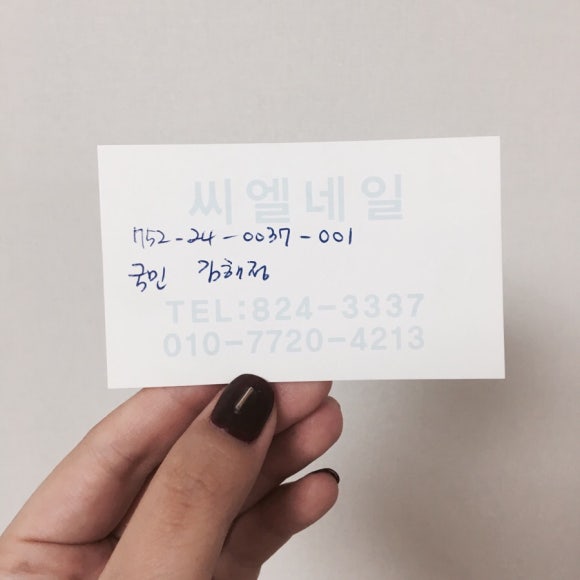 씨엘네일
752-24-0037-001
국민 김해정
TEL:824-3337
010-7720-4213